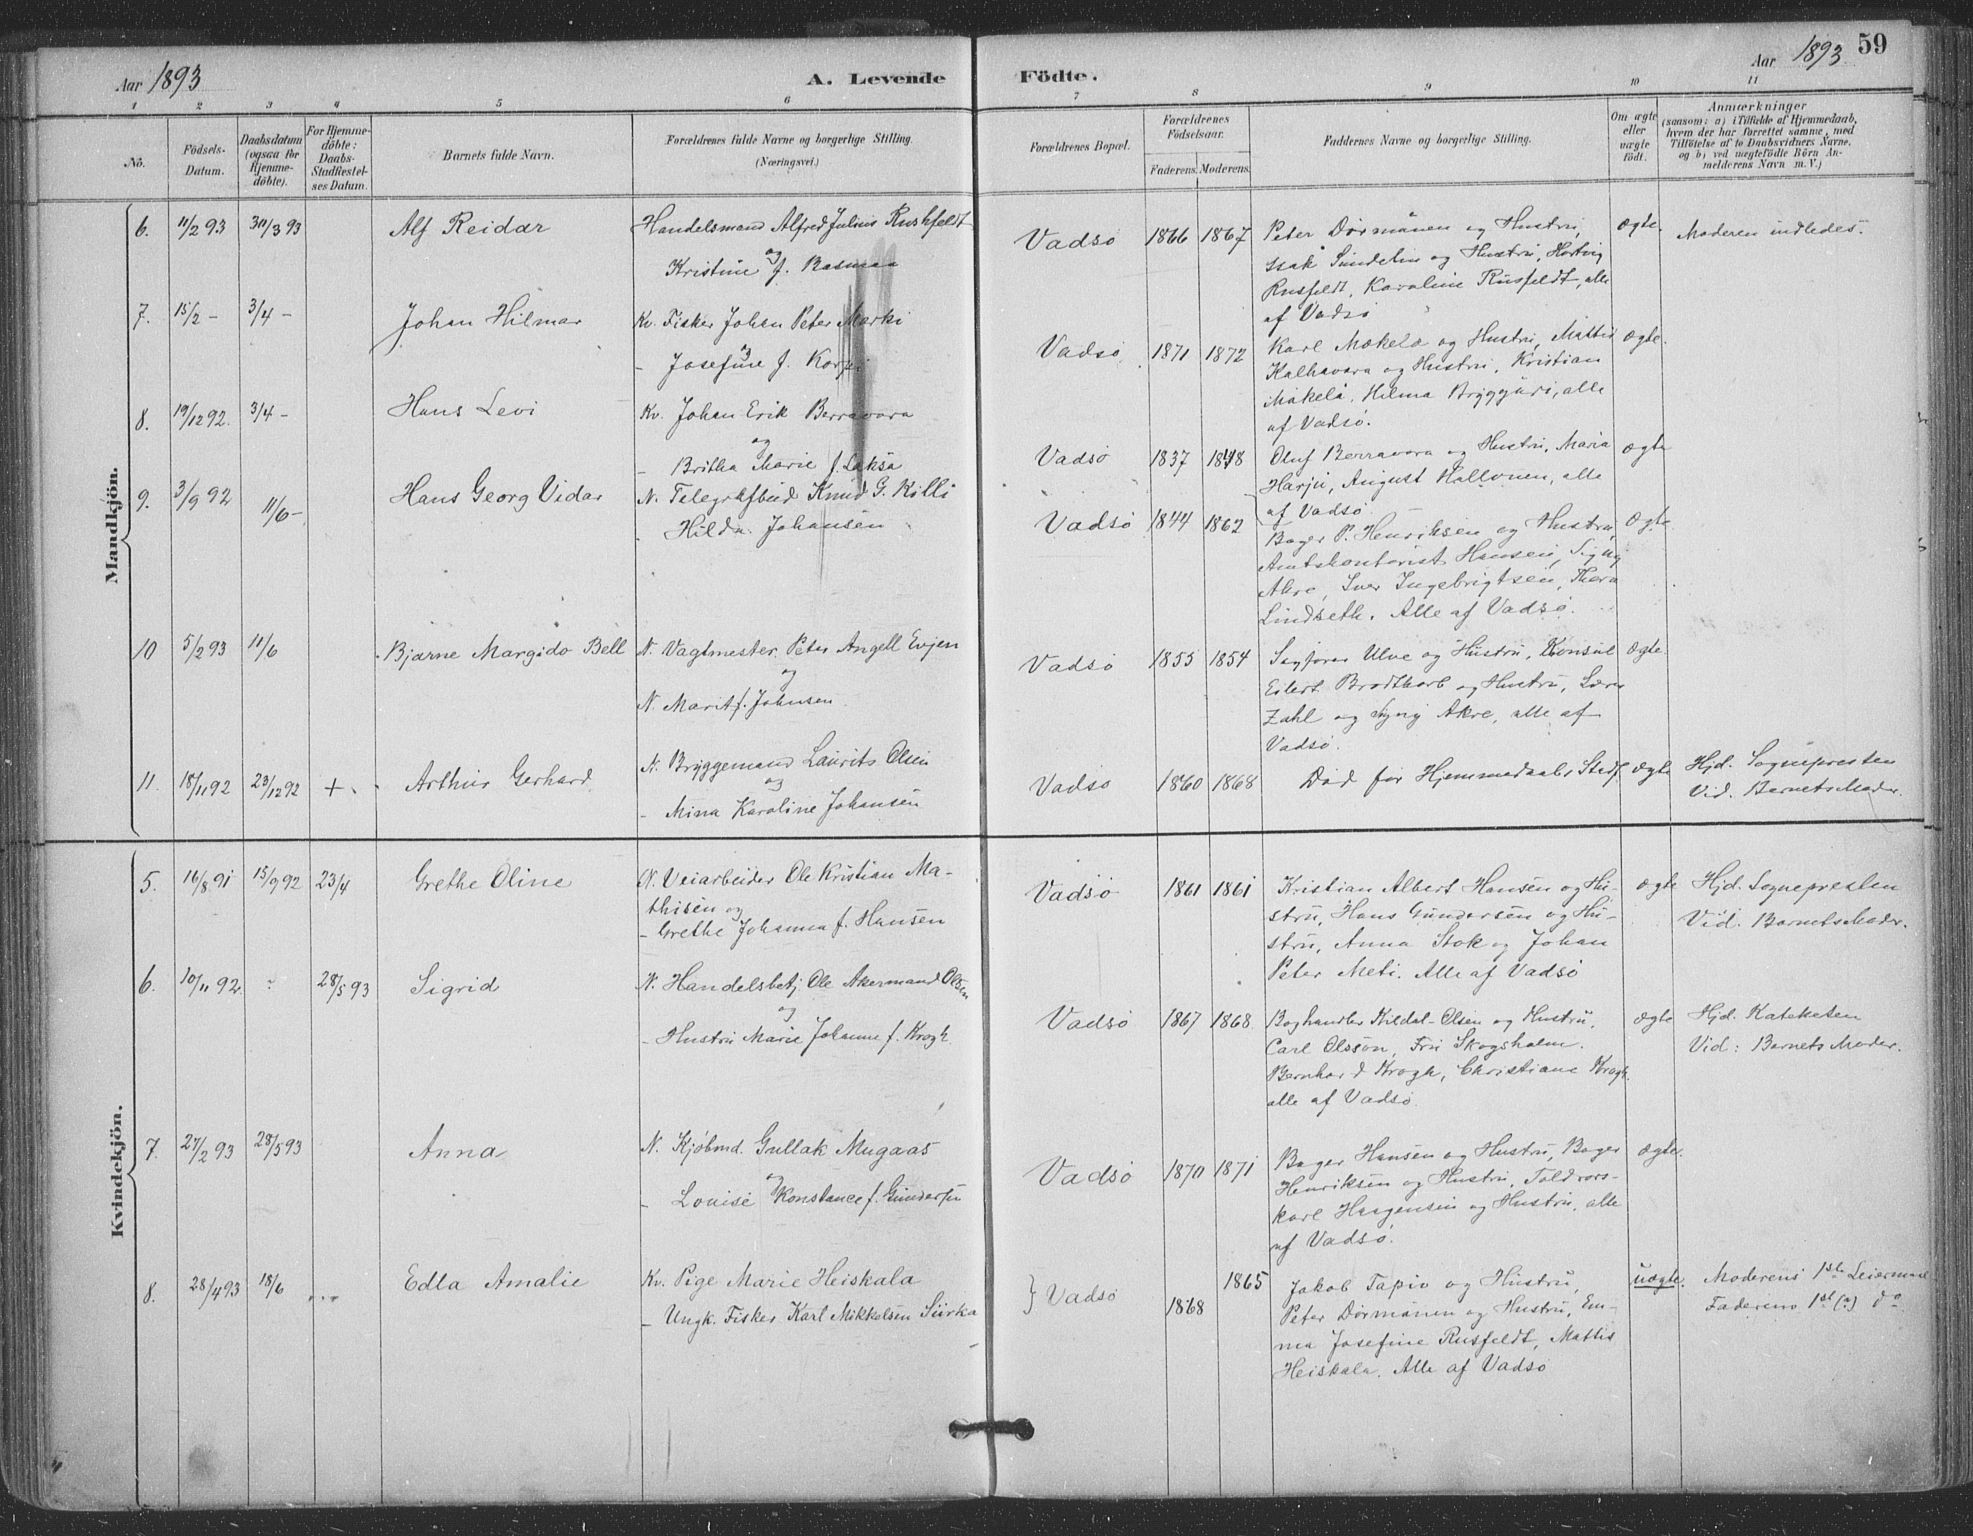 59
Aar 1893
A. Levende Födte.
Aar 1893
1 2 3 4 5 6 7 8 9 10 11
No.
Födsels-Datum.
Daabsdatum (ogsaa for Hjemme-döbte).
For Hjemme-döbte: Daabs-Stadfæstel-ses Datum.
Barnets fulde Navn.
Forældrenes fulde Navne og borgerlige Stilling.
(Næringsvei.)
Forældrenes Bopæl.
Forældrenes Födselsaar.
Faderens. Moderens.
Faddernes Navne og borgerlige Stilling.
Om ægte eller uægte födt.
Anmærkninger
(saasom: a) i Tilfælde af Hjemmedaab,
hvem der har forrettet samme, med
Tilföielse af to Daabsvidners Navne,
og b) ved uægtefödte Börn An-
melderens Navn m. V.)
Mandkjön.
6. 11/2 93 30/3 93 Alf Reidar Handelsmand Alfred Julius Rushfeldt
og
Kristine f. Basmaa
Vadsø 1866 1867 Peter Dørmænen og Hustru, ægte. Moderen indledes.
Isak Sundelin og Hustru, Hartvig
Rusfeldt, Karoline Rusfeldt, alle
af Vadsø
7. 15/2 - 3/4 - Johan Hilmar Kv. Fisker Johan Peter Marki
og
- Josefine f. Korpi
Vadsø 1871 1872 Karl Mækelæ og Hustru, Mattis ægte.
Kalhavara og Hustru, Kristian
Mäkelä, Hilma Bryggäri, alle
af Vadsø.
8. 19/12 92. 3/4 - Hans Levi Kv. Johan Erik Berravara
og
- Britha Marie f. Laksa
Vadsø 1837 1848 Oluf Berravara og Hustru, Maria ægte
Harju, August Hallonen, alle
af Vadsø.
9. 3/9 92 11/6 - Hans Georg Vidar N. Telegrafbud Knud G. Killi
- Hilda Johansen
Vadsø 1844 1862 Bager P. Henriksen og Hustru, ægte
Amtskontorist Hansen, Signy
Akre, Iver Ingebrigtsen, Thora
Lindseth. Alle af Vadsø.
10 5/2 93 11/6 Bjarne Margido Bell N. Vagtmester Peter Angell Evjen
og
N. Marit f. Johnsen
Vadsø 1855 1854 Sagfører Ulve og Hustru, Konsul ægte.
Eilert Brodtkorb og Hustru, Lærer
Zahl og Signy Akre, alle af
Vadsø.
11. 18/11 92 23/12 92 + Arthur Gerhard N. Bryggemand Laurits Olsen
og
- Mina Karoline Johansen
Vadsø 1860 1868 Død før Hjemmedaabs Stadf. ægte Hjd. Sognepresten
Vid. Barnets Moder.
Kvindekjön.
5. 16/8 91 15/9 92 23/4 Grethe Oline N. Veiarbeider Ole Kristian Ma-
thisen og
- Grethe Johanna f. Hansen
Vadsø 1861 1861 Kristian Albert Hansen og Hu- ægte Hjd. Sognepresten
stru, Hans Gundersen og Hu- Vid. Barnets Moder.
stru, Anna Stok og Johan
Peter Meti. Alle af Vadsø
6. 10/11 92. 28/5 93 Sigrid N. Handelsbetj. Ole Akermand Olsen
og
- Hustru Marie Johanne f. Krogh
Vadsø 1867 1868 Boghandler Kildal-Olsen og Hustru, ægte Hjd. Kateketen
Carl Olsson, Fru Skogsholm. Vid: Barnets Moder.
Bernhard Krogh, Christiane Krogh.
alle af Vadsø
7. 27/2 93 28/5 93 Anna N. Kjøbmd. Gullak Mugaas
og
- Louise Konstance f. Gundersen
Vadsø 1870 1871 Bager Hansen og Hustru, Bager ægte.
Henriksen og Hustru, Toldrors-
karl Haagensen og Hustru, alle
af Vadsø.
8. 28/4 93 18/6 ... Edla Amalie Kv. Pige Marie Heiskala
- Ungk. Fisker Karl Mikkelsen Siirka
} Vadsø 1868 1865 Jakob Tapio og Hustru, uægte. Moderens 1ste Leiermaal
Peter Dørmänen og Hustru, Em- Faderens 1st (?) do
ma Josefine Rusfeldt, Mattis
Heiskala. Alle af Vadsø